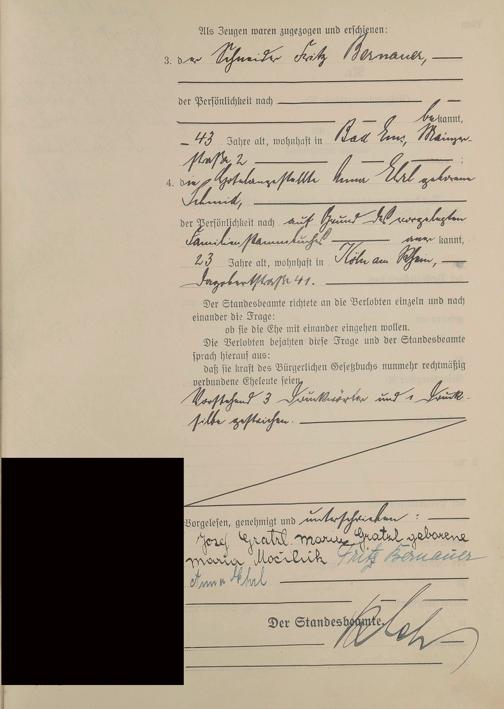 Als Zeugen waren zugezogen und erschienen:
3. der Schneider Fritz Bernauer,
der Persönlichkeit nach
bekannt,
43 Jahre alt, wohnhaft in Bad Ems, Mainzer-
straße 2
4. die Hotelangestellte Anna geborene
Schmid,
der Persönlichkeit nach auf Grund des vorgelegten
Familienstammbuches anerkannt,
23 Jahre alt, wohnhaft in Köln am Rhein,
Dagobertstraße 41.
Der Standesbeamte richtete an die Verlobten einzeln und nach
einander die Frage:
ob sie die Ehe mit einander eingehen wollen.
Die Verlobten bejahten diese Frage und der Standesbeamte
sprach hierauf aus:
daß sie kraft des Bürgerlichen Gesetzbuchs nunmehr rechtmäßig
verbundene Eheleute seien.
Vorstehend 3 Druckwörter und 1 Druck-
silbe gestrichen.
Vorgelesen, genehmigt und unterschrieben:
Josef Gratzl. Maria Gratzl geborene
Maria Fritz Bernauer
Anna
Der Standesbeamte.